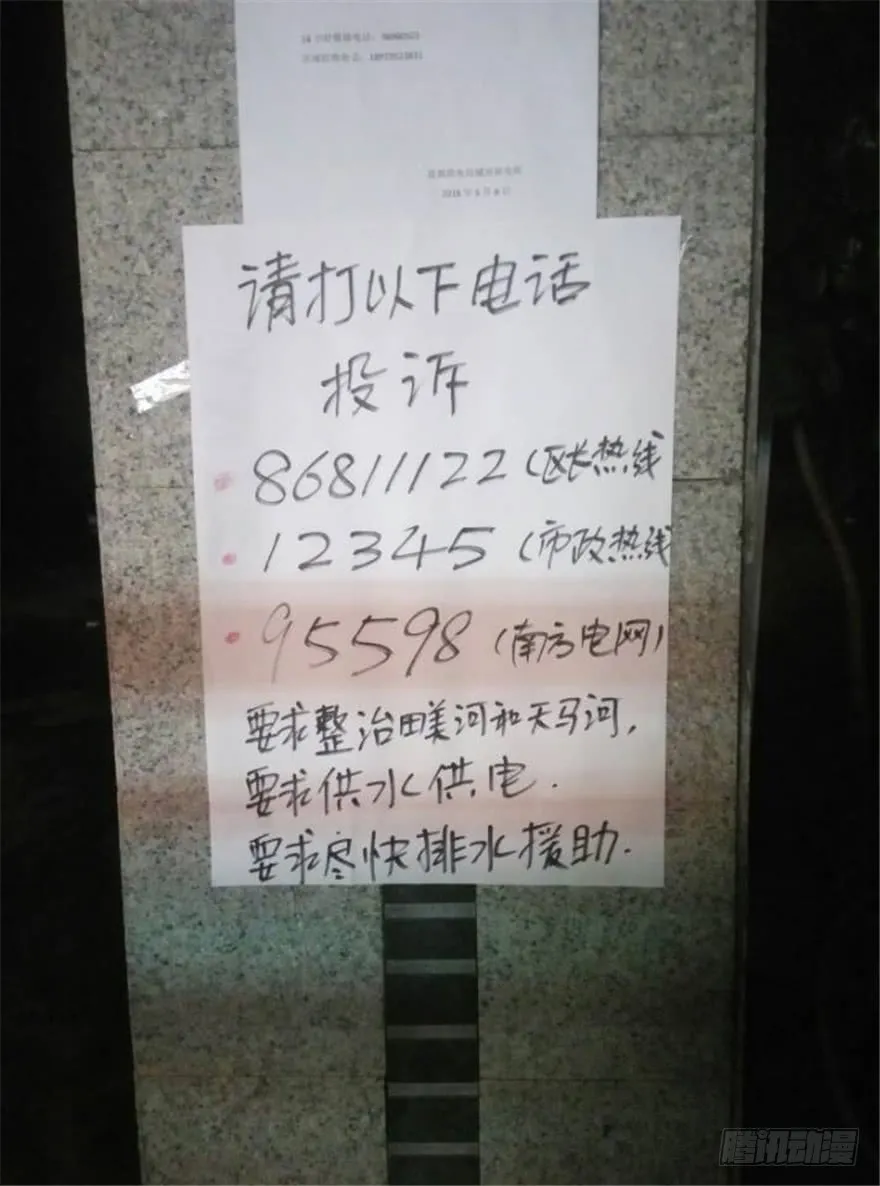 请打以下电话
投诉
86811122(区长热线
12345(市政热线
95598(南方电网)
要求整治田美河和天马河,
要求供水供电.
要求尽快排水援助.
腾讯动漫